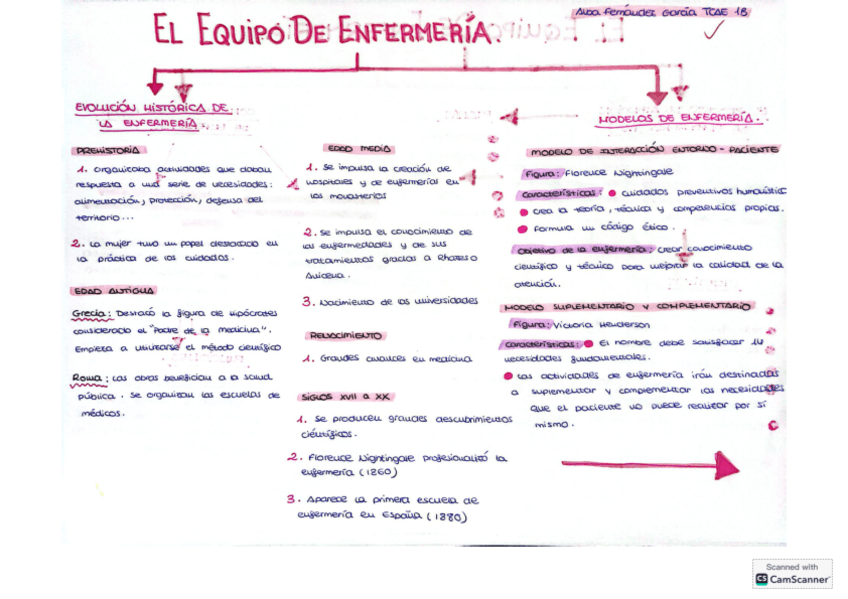 Alba Fernández García TCAE 1B
EL EQUIPO DE ENFERMERÍA.
EVOLUCIÓN HISTÓRICA DE
LA ENFERMERÍA
PREHISTORIA
1. Organizaba actividades que daban
respuesta a una serie de necesidades:
alimentación, protección, defensa del
territorio...
2. La mujer tuvo un papel destacado en
la práctica de los cuidados.
EDAD ANTIGUA
Grecia: Destacó la figura de Hipócrates
considerado el "Padre de la medicina".
Empieza a utilizarse el método científico
Roma: Las obras benefician a la salud
pública. Se organizan las escuelas de
médicos.
EDAD MEDIA
1. Se impulsa la creación de
hospitales y de enfermerías en
los monasterios
2. Se impulsa el conocimiento de
las enfermedades y de sus
tratamientos gracias a Rhazes o
Avicena.
3. Nacimiento de las universidades
RENACIMIENTO
1. Grandes avances en medicina
SIGLOS XVII a XX
1. Se producen grandes descubrimientos
científicos.
2. Florence Nightingale profesionalizó la
enfermería (1860)
3. Aparece la primera escuela de
enfermería en España (1880)
MODELOS DE ENFERMERÍA.
MODELO DE INTERACCIÓN ENTORNO - PACIENTE
Figura: Florence Nightingale
Características: Cuidados preventivos humanístic
Crea la teoría, técnica y competencias propias.
Formula un código ético.
Objetivo de la enfermería: Crear conocimiento
científico y técnico para mejorar la calidad de la
atención.
MODELO SUPLEMENTARIO Y COMPLEMENTARIO
Figura: Victoria Henderson
Características: El hombre debe satisfacer 14
necesidades fundamentales.
Las actividades de enfermería irán destinadas
a suplementar y complementar las necesidades
que el paciente no puede realizar por sí
mismo.
Scanned with
CS CamScanner